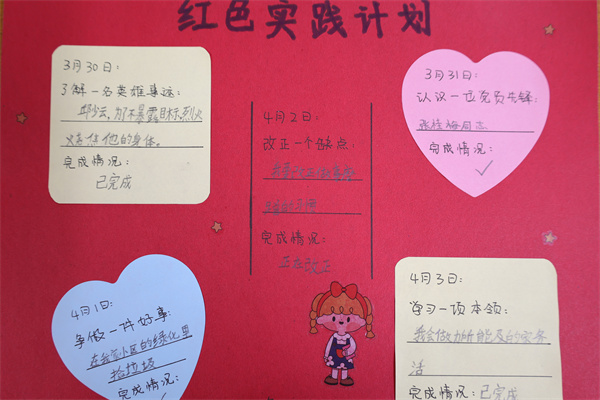 红色实践计划
3月30日:
了解一名英雄事迹:
邱少云,为不暴露目标,烈火
烧焦他的身体。
完成情况:
已完成
3月31日:
认识一位党员先锋:
张桂梅同志
完成情况:
✓
4月2日:
改正一个缺点:
完成情况:
正在改正
4月1日:
争做一件好事:
在我家小区的绿化里
捡垃圾
完成情况:
4月3日:
学习一项本领:
我会做力所能及的家务
活
完成情况:已完成